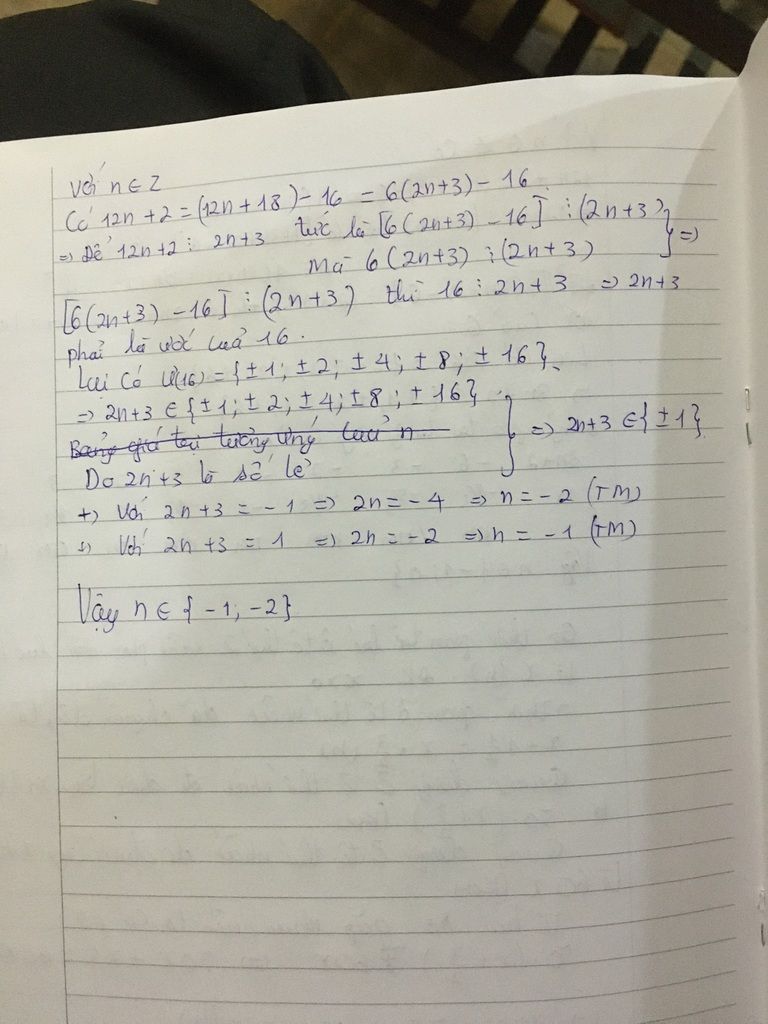 Với n ∈ Z
Có 12n + 2 = (12n + 18) - 16 = 6(2n+3) - 16
=> Để 12n+2 ⋮ 2n+3 tức là [6(2n+3) - 16] ⋮ (2n+3) } =>
Mà 6(2n+3) ⋮ (2n+3)
[6(2n+3) - 16] ⋮ (2n+3) thì 16 ⋮ 2n+3 => 2n+3
phải là ước của 16.
Lại có Ư(16) = {±1; ±2; ±4; ±8; ±16}.
=> 2n+3 ∈ {±1; ±2; ±4; ±8; ±16} } => 2n+3 ∈ {±1}
Bảng giá trị tương ứng của n
Do 2n+3 là số lẻ
+) Với 2n+3 = -1 => 2n = -4 => n = -2 (TM)
+) Với 2n+3 = 1 => 2n = -2 => n = -1 (TM)
Vậy n ∈ {-1; -2}